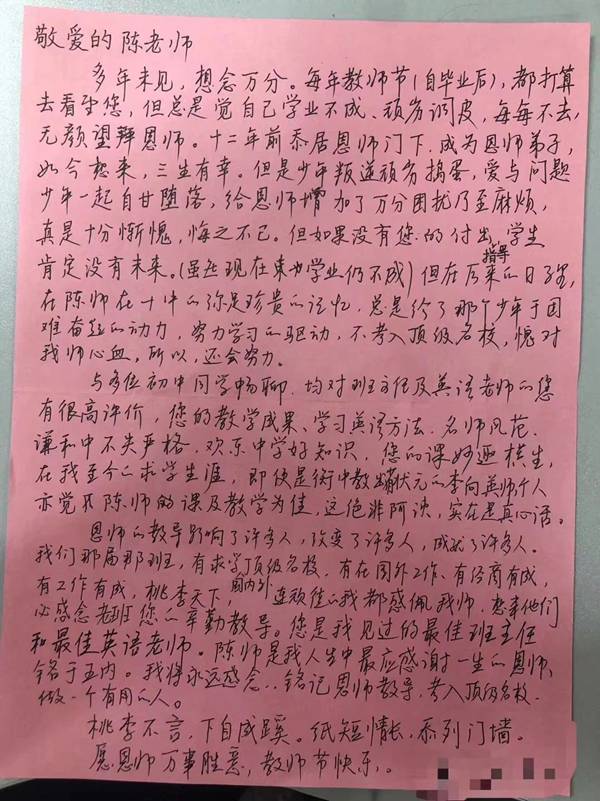 敬爱的陈老师
多年未见，想念万分。每年教师节(自毕业后)，都打算
去看望您，但总是觉自己学业不成、顽劣调皮，每每不去，
无颜望拜恩师。十二年前忝居恩师门下，成为恩师弟子，
如今想来，三生有幸。但是少年叛逆顽劣捣蛋，爱与问题
少年一起自甘堕落，给恩师增加了万分困扰乃至麻烦，
真是十分惭愧，悔之不已。但如果没有您的付出指导，学生
肯定没有未来。(虽然现在学业仍不成)但在后来的日子里，
在陈师在十中的弥足珍贵的记忆，总是给了那个少年于困
难奋起的动力，努力学习的驱动，不考入顶级名校，愧对
我师心血，所以，还会努力。
与多位初中同学畅聊，均对班主任及英语老师的您
有很高评价，您的教学成果、学习英语方法、名师风范、
谦和中不失严格，欢乐中学好知识，您的课妙趣横生，
在我至今的求学生涯，即使是衡中教出状元的李向羡师，个人
亦觉不陈师的课及教学为佳，这绝非阿谀，实在是真心话。
恩师的教导影响了许多人，改变了许多人，成就了许多人。
我们那届那班，有求学顶级名校，有在国外工作、有经商有成，
有工作有成，桃李天下，国内外 连顽徒的我都感佩我师，想来他们
必感念老班您的辛勤教导。您是我见过的最佳班主任
和最佳英语老师。陈师是我人生中最应感谢一生的恩师，
铭于五内。我将永远感念..铭记恩师教导，考入顶级名校，
做一个有用的人。
桃李不言，下自成蹊。纸短情长，忝列门墙。
愿恩师万事胜意，教师节快乐。